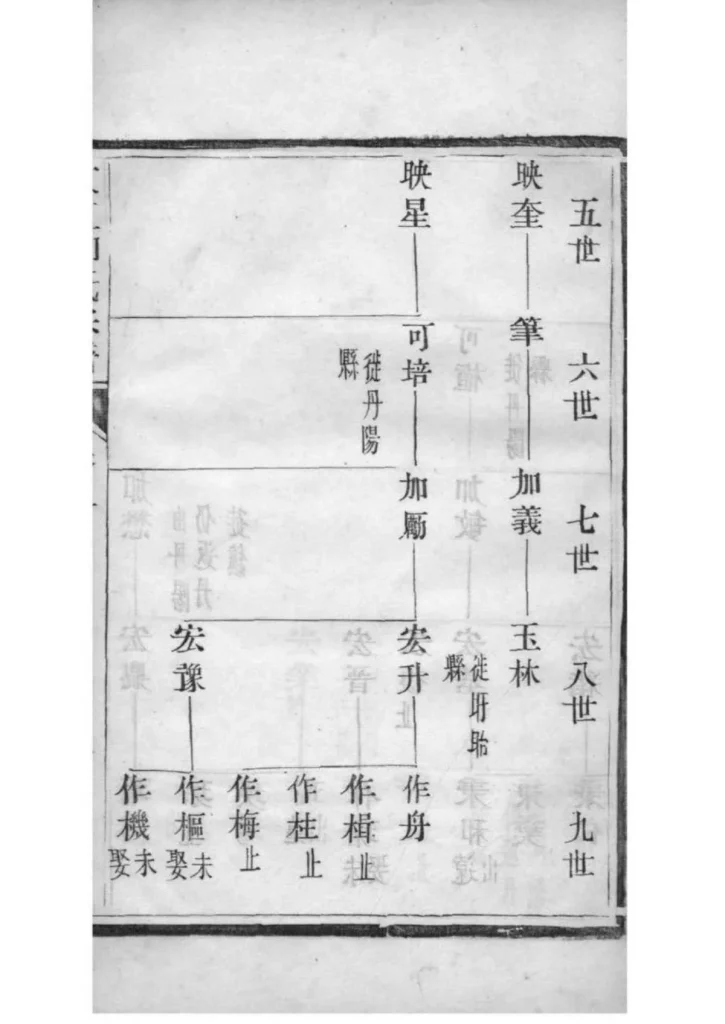 五世
六世
七世
八世
九世
映奎
筆
加義
玉林
徙盱眙
縣
映星
可培
徙丹陽
縣
加勵
宏升
作舟
作楫
止
作柱
止
作梅
止
宏豫
作樞
未
娶
作機
未
娶